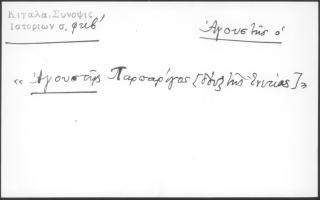 Κιγάλα, Σύνοψις
Ἱστοριῶν σ. φκβ'
Ἀγουστῆς ὁ
«Ἀγουστῆς Παρπαρίγος [δὸυξ τῆς Ἐνετίας]»